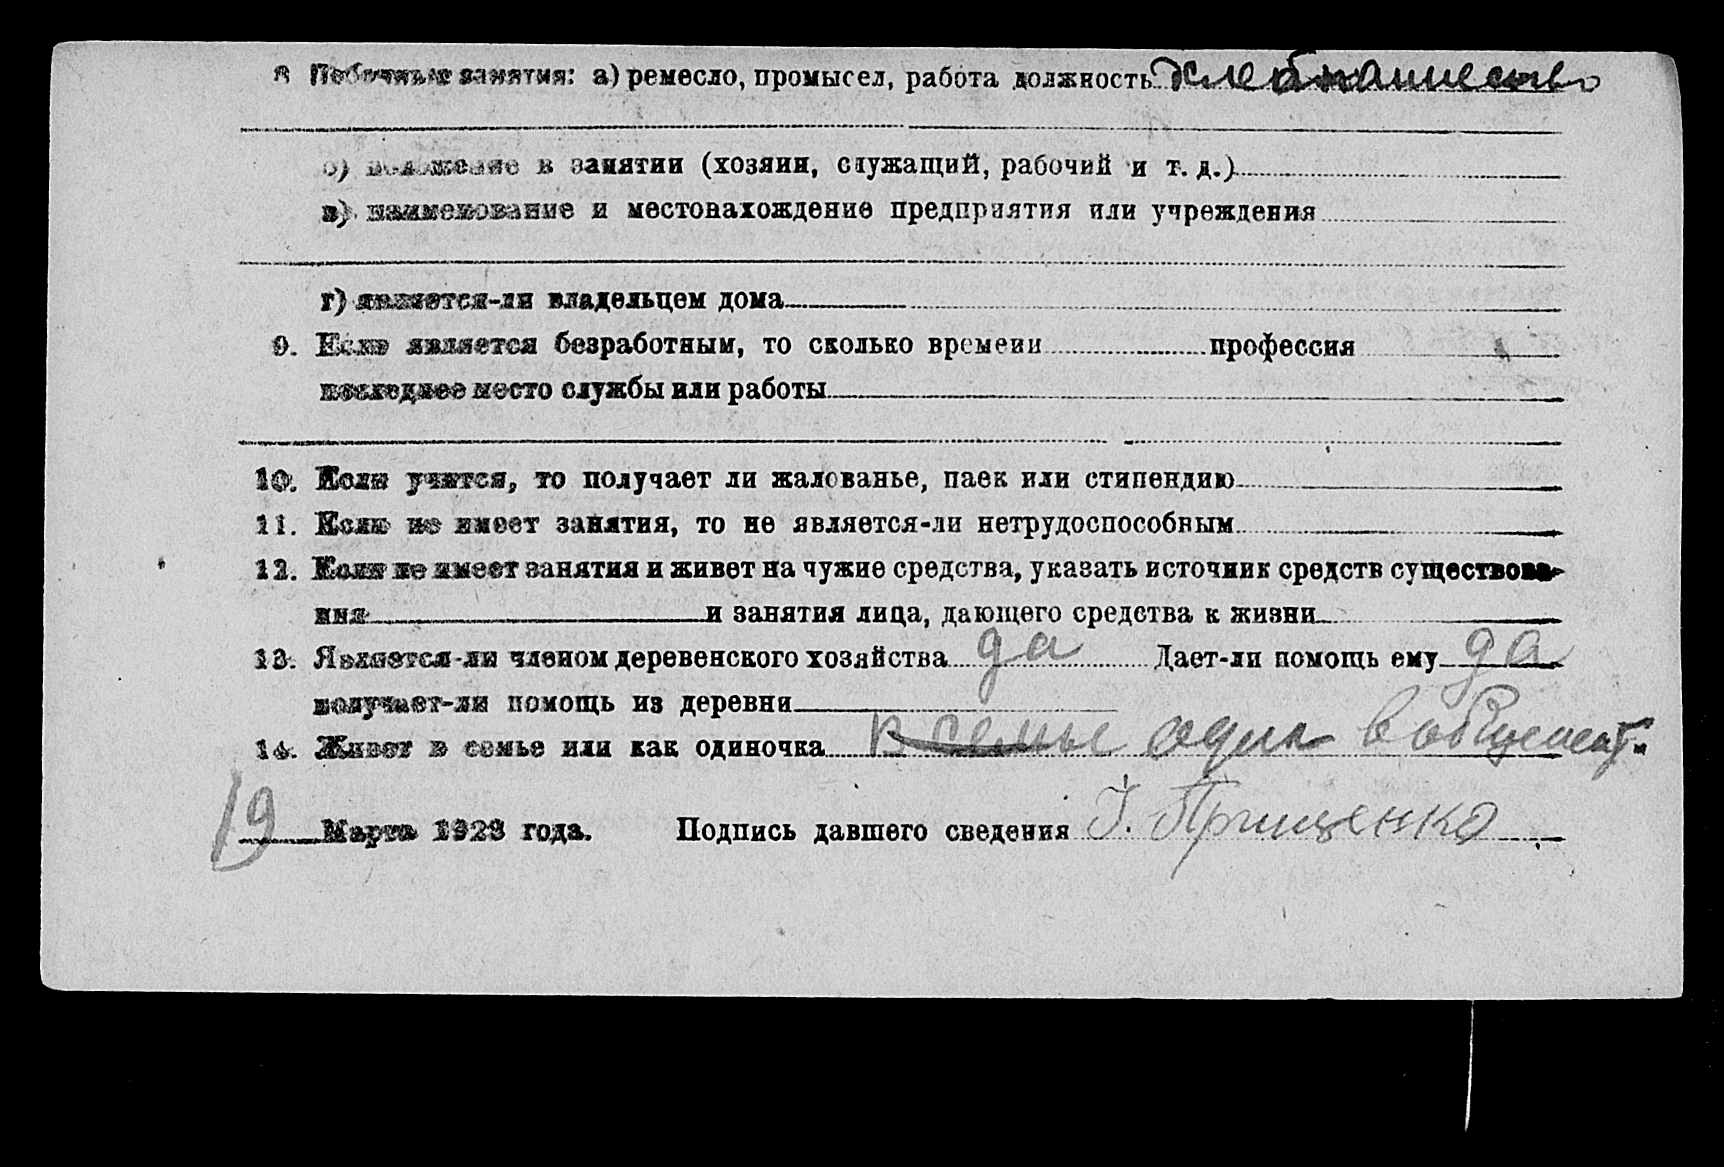 8 Побочные занятия: а) ремесло, промысел, работа должность хлебпашество
б) положение в занятии (хозяин, служащий, рабочий и т. д.)
в) наименование и местонахождение предприятия или учреждения
г) является-ли владельцем дома
9. Если является безработным, то сколько времени профессия
последнее место службы или работы
10. Если учится, то получает ли жалованье, паек или стипендию
11. Если не имеет занятия, то не является-ли нетрудоспособным
12. Если не имеет занятия и живет на чужие средства, указать источник средств существова-
ния и занятия лица, дающего средства к жизни
13. Является-ли членом деревенского хозяйства да Дает-ли помощь ему да
получает-ли помощь из деревни
14. Живет в семье или как одиночка в семье один в общежит.
19 Марта 1923 года. Подпись давшего сведения І. Прищенко